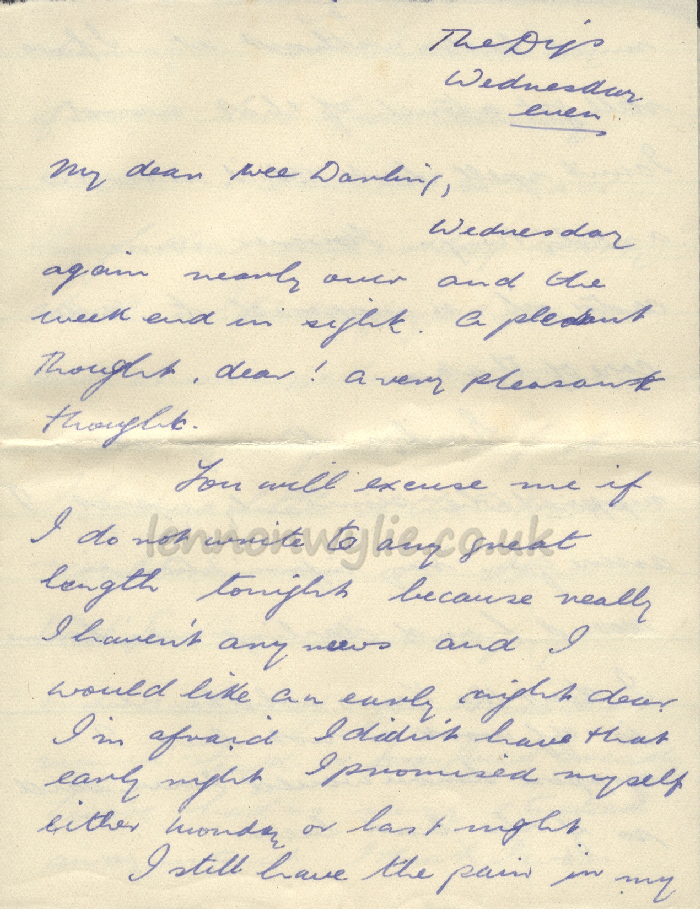 The Digs
Wednesday
even
My dear wee Darling,
Wednesday
again nearly over and the
week end in sight. A pleasant
thought, dear! A very pleasant
thought.
You will excuse me if
I do not write to any great
lennonwylie.co.uk
length tonight because really
I haven't any news and I
would like an early night dear
I'm afraid I didn't have that
early night I promised myself
either Monday or last night
I still have the pain in my